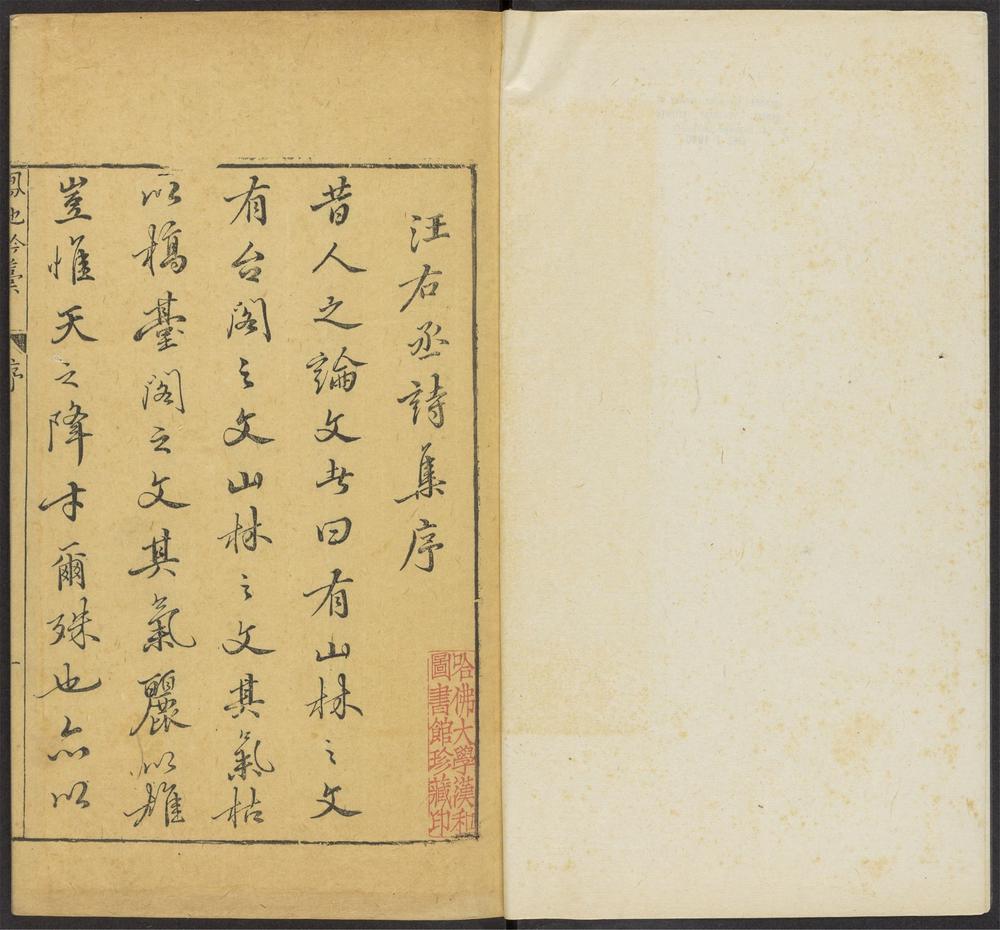 汪右丞詩集序
昔人之論文者曰有山林之文
有台閣之文山林之文其氣枯
以槁臺閣之文其氣麗以雄
豈惟天之降才爾殊也亦以
鳳池吟稾
序
一
哈佛大學漢和
圖書館珍藏印